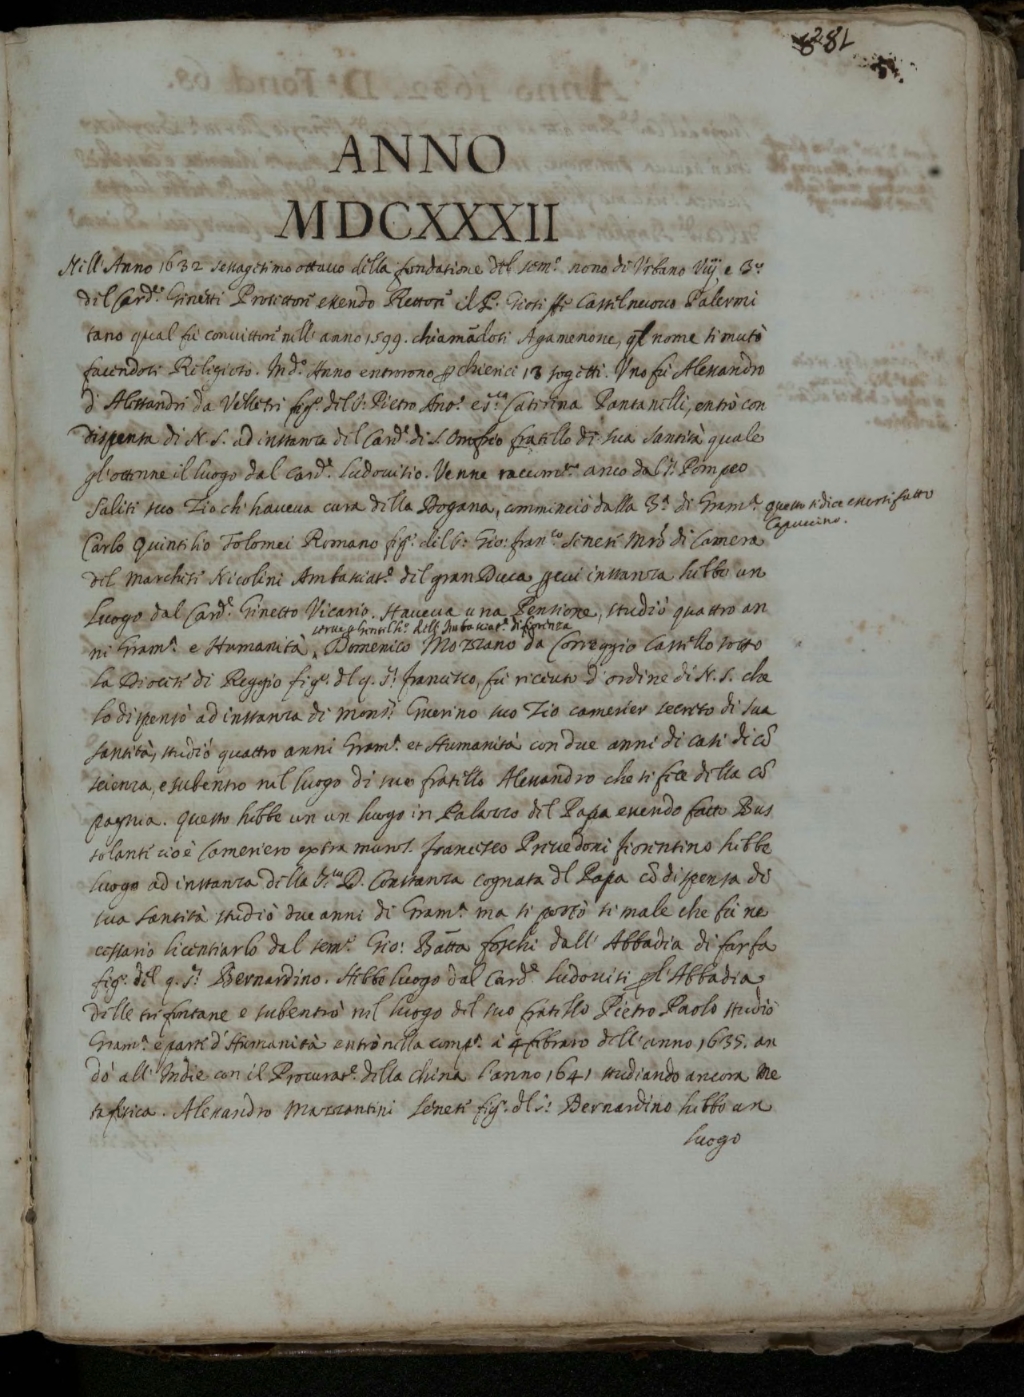 281
ANNO
MDCXXXII
Nell' Anno 1632 settagesimo ottavo della fondatione del sem.º nono di Urbano Viij e 3.º
del Card.e Ginetti Protettore essendo Rettore il P. Gioseffe Castelnuovo Palermi
tano qual fu convittore nell' anno 1599. chiamādosi Agamenone, q̄l nome si mutò
facendosi Religioso. In d.º Anno entrorono p̱ chierici 13 sogetti. Uno fu Alessandro
d' Alessandri da Velletri fig.º del S.r Pietro Ant.º e S.ra Caterina Pantanelli, entrò con
dispensa di N. S. ad instanza del Card.e di S. Onofrio fratello di sua Santità quale
gl' ottenne il luogo dal Card.e Ludovisio. Venne raccom.to anco dal S.r Pompeo
Saliti suo Zio ch' haveva cura della Dogana, comminciò dalla 3.a di Gram.a questo si dice essersi fatto
Capuccino.
Carlo Quintilio Tolomei Romano fig.º del S.r Gio: Fran.co Senese Mrō di Camera
del Marchese Nicolini Ambasciat.re del gran Duca p̱ cui instanza hebbe un
luogo dal Card.e Ginetto Vicario. Haveva una Pensione, studiò quattro an
serve p̱ Gentilh.º dell' Imbasciat.re di fiorenza
ni Gram.a e Humanità. Domenico Mozzano da Correggio Castello sotto
la Diocesi di Reggio fig.º del q. S.r Francesco, fu ricevuto d' ordine di N. S. che
lo dispensò ad instanza di Mons.r Guerino suo Zio camerier secreto di sua
Santità, studiò quattro anni Gram.a et Humanità con due anni di casi di cō
scienza, e subentrò nel luogo di suo fratello Alessandro che si fece della cō
pagnia. questo hebbe un un luogo in Palazzo del Papa essendo fatto Bus
solante cioè Cameriero extra muros. Francesco Prevedoni fiorentino hebbe
luogo ad instanza della S.ra D. Constanza cognata del Papa cō dispensa di
sua Santità studiò due anni di Gram.a ma si portò sì male che fu ne
cessario licentiarlo dal sem.º Gio: Batta Foschi dall' Abbadia di Farfa
fig.º del q. S.r Bernardino. Hebbe luogo dal Card.e Ludovisi p̱ l' Abbadia
delle tre fontane e subentrò nel luogo del suo fratello Pietro Paolo studiò
Gram.a e parte d' Humanità entrò nella comp.a a 4 febraro dell' anno 1635. an
dò all' Indie con il Procurat.re della China l' anno 1641 studiando ancora Me
tafisica. Alessandro Mazzantini Senese fig.º del S.r Bernardino hebbe un
luogo